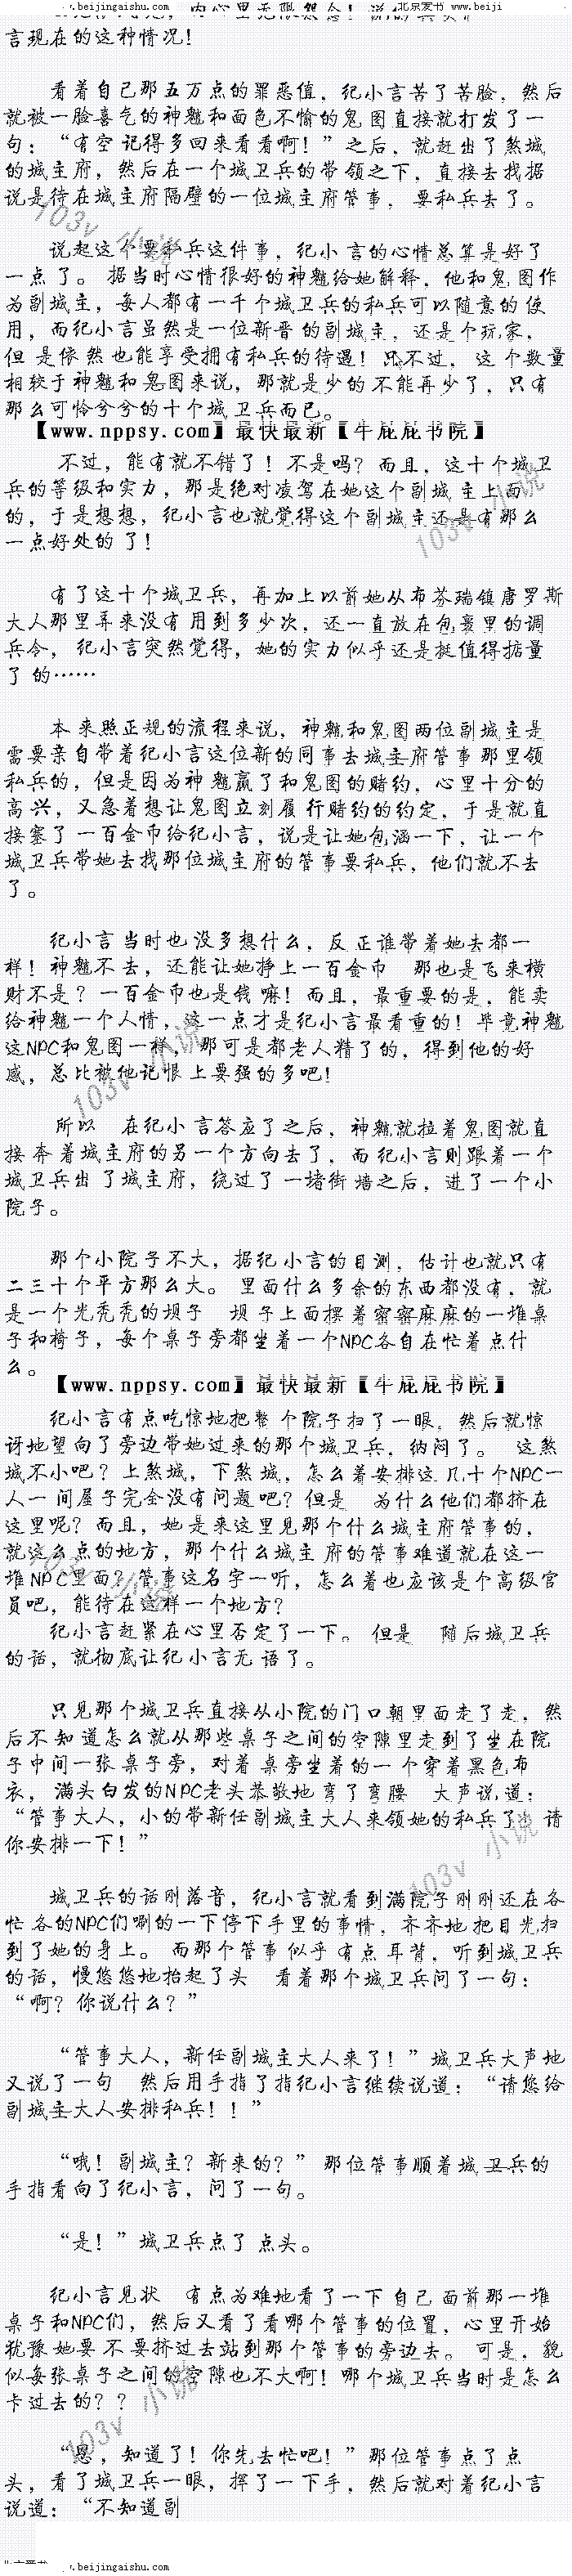 www.beijingaishu.com 北京爱书 www.beiji
言现在的这种情况！
看着自己那五万点的罪恶值，纪小言苦了苦脸，然后
就被一脸喜气的神魃和面色不愉的鬼图直接就打发了一
句：“有空记得多回来看看啊！”之后，就赶出了煞城
的城主府，然后在一个城卫兵的带领之下，直接去找据
说是待在城主府隔壁的一位城主府管事，要私兵去了。
说起这个要私兵这件事，纪小言的心情总算是好了
一点了。据当时心情很好的神魃给她解释，他和鬼图作
为副城主，每人都有一千个城卫兵的私兵可以随意的使
用，而纪小言虽然是一位新晋的副城主，还是个玩家，
但是依然也能享受拥有私兵的待遇！只不过，这个数量
相较于神魃和鬼图来说，那就是少的不能再少了，只有
那么可怜兮兮的十个城卫兵而已。
【www.nppsy.com】最快最新【牛屁屁书院】
不过，能有就不错了！不是吗？而且，这十个城卫
兵的等级和实力，那是绝对凌驾在她这个副城主上面
的，于是想想，纪小言也就觉得这个副城主还是有那么
一点好处的了！
有了这十个城卫兵，再加上以前她从布芬瑞镇唐罗斯
大人那里弄来没有用到多少次，还一直放在包裹里的调
兵令，纪小言突然觉得，她的实力似乎还是挺值得掂量
了的……
本来照正规的流程来说，神魃和鬼图两位副城主是
需要亲自带着纪小言这位新的同事去城主府管事那里领
私兵的，但是因为神魃赢了和鬼图的赌约，心里十分的
高兴，又急着想让鬼图立刻履行赌约的约定，于是就直
接塞了一百金币给纪小言，说是让她包涵一下，让一个
城卫兵带她去找那位城主府的管事要私兵，他们就不去
了。
纪小言当时也没多想什么，反正谁带着她去都一
样！神魃不去，还能让她挣上一百金币 那也是飞来横
财不是？一百金币也是钱嘛！而且，最重要的是，能卖
给神魃一个人情，这一点才是纪小言最看重的！毕竟神魃
这NPC和鬼图一样，那可是都老人精了的，得到他的好
感，总比被他记恨上要强的多吧！
所以 在纪小言答应了之后，神魃就拉着鬼图就直
接奔着城主府的另一个方向去了，而纪小言则跟着一个
城卫兵出了城主府，绕过了一堵街墙之后，进了一个小
院子。
那个小院子不大，据纪小言的目测，估计也就只有
二三十个平方那么大。里面什么多余的东西都没有，就
是一个光秃秃的坝子 坝子上面摆着密密麻麻的一堆桌
子和椅子，每个桌子旁都坐着一个NPC各自在忙着点什
么。
【www.nppsy.com】最快最新【牛屁屁书院】
纪小言有点吃惊地把整个院子扫了一眼，然后就惊
讶地望向了旁边带她过来的那个城卫兵，纳闷了。这煞
城不小吧？上煞城，下煞城，怎么着安排这几十个NPC一
人一间屋子完全没有问题吧？但是 为什么他们都挤在
这里呢？而且，她是来这里见那个什么城主府管事的，
就这么点的地方，那个什么城主府的管事难道就在这一
堆NPC里面？管事这名字一听，怎么着也应该是个高级官
员吧，能待在这样一个地方？
纪小言赶紧在心里否定了一下。但是 随后城卫兵
的话，就彻底让纪小言无语了。
只见那个城卫兵直接从小院的门口朝里面走了走，然
后不知道怎么就从那些桌子之间的空隙里走到了坐在院
子中间一张桌子旁，对着桌旁坐着的一个穿着黑色布
衣，满头白发的NPC老头恭敬地弯了弯腰 大声说道：
“管事大人，小的带新任副城主大人来领她的私兵了，请
你安排一下！”
城卫兵的话刚落音，纪小言就看到满院子刚刚还在各
忙各的NPC们唰的一下停下手里的事情，齐齐地把目光扫
到了她的身上。而那个管事似乎有点耳背，听到城卫兵
的话，慢悠悠地抬起了头 看着那个城卫兵问了一句：
“啊？你说什么？”
“管事大人，新任副城主大人来了！”城卫兵大声地
又说了一句 然后用手指了指纪小言继续说道：“请您给
副城主大人安排私兵！！”
“哦！副城主？新来的？”那位管事顺着城卫兵的
手指看向了纪小言，问了一句。
“是！”城卫兵点了点头。
纪小言见状 有点为难地看了一下自己面前那一堆
桌子和NPC们，然后又看了看哪个管事的位置，心里开始
犹豫她要不要挤过去站到那个管事的旁边去。可是，貌
似每张桌子之间的空隙也不大啊！哪个城卫兵当时是怎么
卡过去的？？
“恩，知道了！你先去忙吧！”那位管事点了点
头，看了城卫兵一眼，挥了一下手，然后就对着纪小言
说道：“不知道副
www.beijingaishu.com
103v 小说
103v 小说
103v 小说
103v 小说
103v 小说
103v 小说